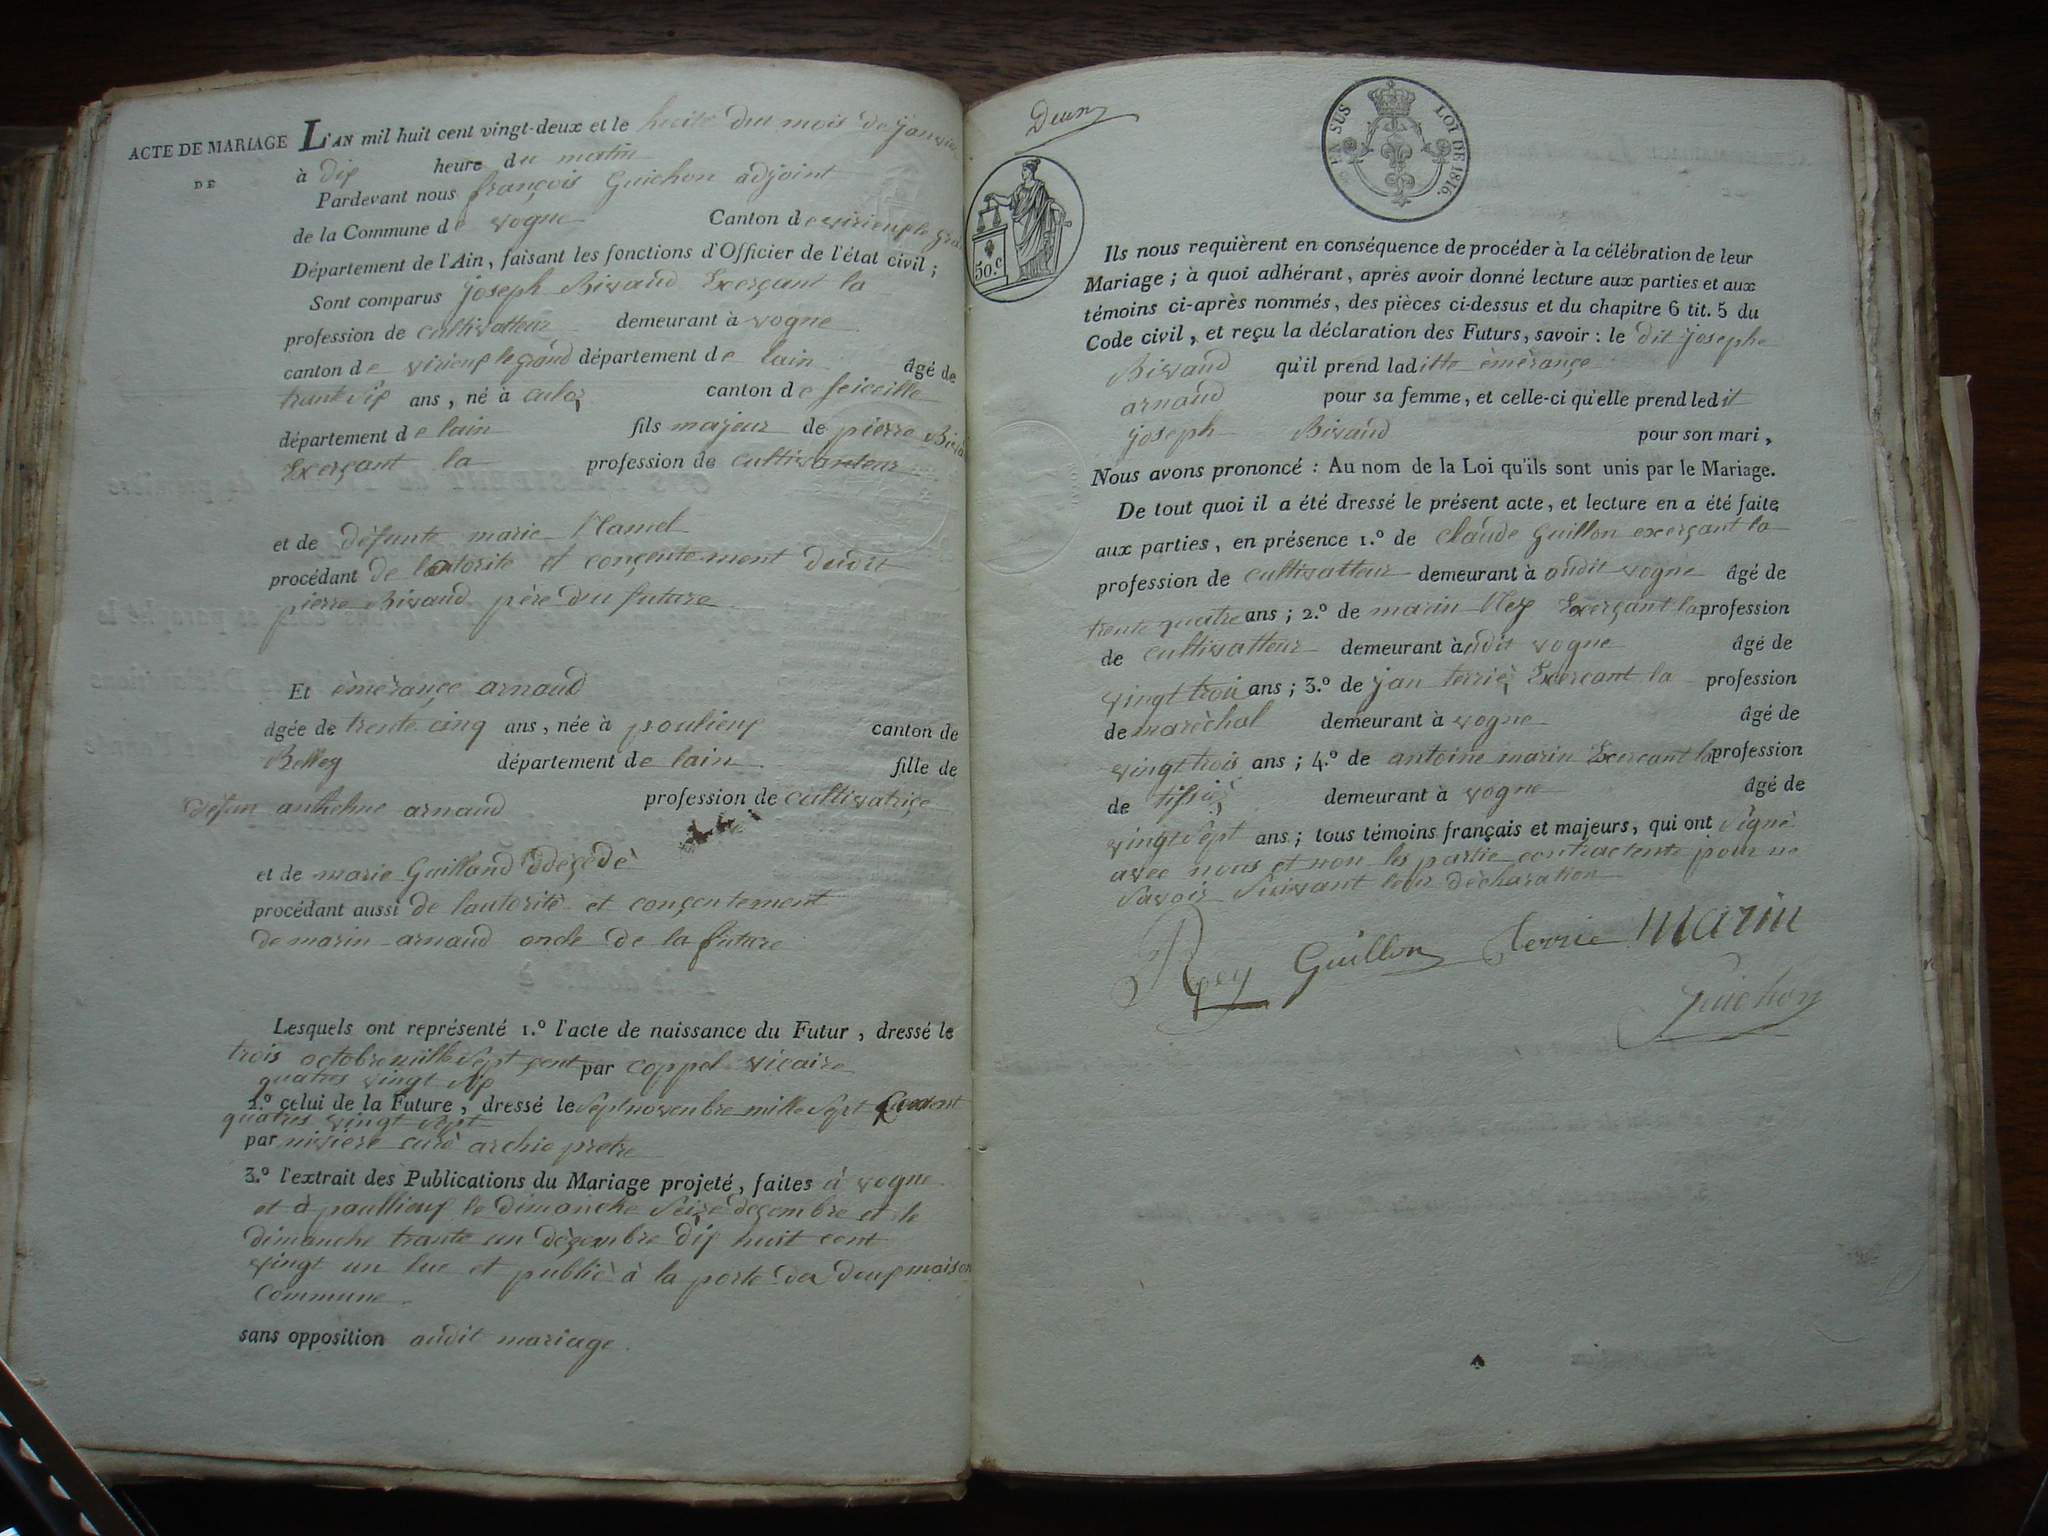 ACTE DE MARIAGE
DE
L'AN mil huit cent vingt-deux et le huite du mois de janvier
à dix heure du matin
Pardevant nous françois Guichon adjoint
de la Commune de vogne Canton de virieux le gra
Département de l'Ain, faisant les fonctions d'Officier de l'état civil ;
Sont comparus joseph Bivaud Exerçant la
profession de cultivatteur demeurant à vogne
canton de virieux le grand département de lain âgé de
trante six ans, né à culoz canton de seiceille
département de lain fils majeur de pierre
Exerçant la profession de cultivateur
et de défunte marie
procédant de lautorite et conçentement dudit
pierre Bivaud père du future
Et èmèrançe arnaud
âgée de trente cinq ans, née à poulieux canton de
Belley département de lain fille de
defun anthelme arnaud profession de cultivatriçe
et de marie Gailland dèçèdè
procédant aussi de lautorité et conçentement
de marin arnaud oncle de la future
Lesquels ont représenté 1.º l'acte de naissance du Futur, dressé le
trois octobre mille sept çent par coppel viçaire
quatres vingt six
2.º celui de la Future, dressé le sept novenbre mille sept
quatres vingt sept
par nivière curé archie pretre
3.º l'extrait des Publications du Mariage projeté, faites à vogne
et à poullieux le dimanche seize deçembre et le
dimanche trante un dèçembre dix huit cent
vingt un lue et publiè à la porte da deux maison
commune.
sans opposition audit mariage.
Deux
30.c
EN SUS LOI DE 1816.
Ils nous requièrent en conséquence de procéder à la célébration de leur
Mariage ; à quoi adhérant, après avoir donné lecture aux parties et aux
témoins ci-après nommés, des pièces ci-dessus et du chapitre 6 tit. 5 du
Code civil, et reçu la déclaration des Futurs, savoir : le dit josephe
Bivaud qu'il prend laditte èmèrançe
arnaud pour sa femme, et celle-ci qu'elle prend ledit
joseph Bivaud pour son mari,
Nous avons prononcé : Au nom de la Loi qu'ils sont unis par le Mariage.
De tout quoi il a été dressé le présent acte, et lecture en a été faite
aux parties, en présence 1.º de claude Guillon exerçant la
profession de cultivatteur demeurant à audit vogne âgé de
trente quatre ans ; 2.º de marin Rey Exerçant la profession
de cultivatteur demeurant à udit vogne âgé de
vingt trois ans ; 3.º de jan terrié Exercant la profession
de marèchal demeurant à vogne âgé de
vingt trois ans ; 4.º de antoine marin Exercant la profession
de tissié demeurant à vogne âgé de
vingt sept ans ; tous témoins français et majeurs, qui ont signè
avec nous et non les partie contractente pour ne
savoir suivant leur dècharation
Rey Guillon terrie MARIN
Guichon